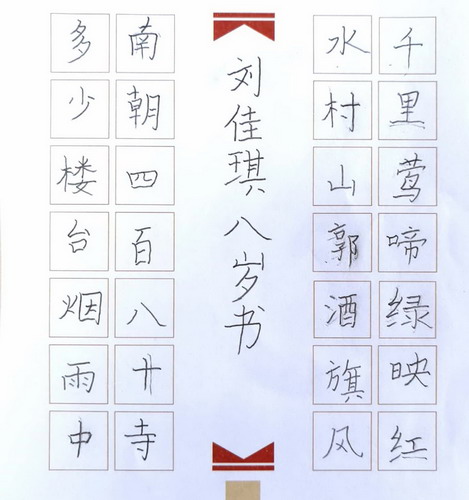 千里莺啼绿映红
水村山郭酒旗风
刘佳琪八岁书
南朝四百八卄寺
多少楼台烟雨中